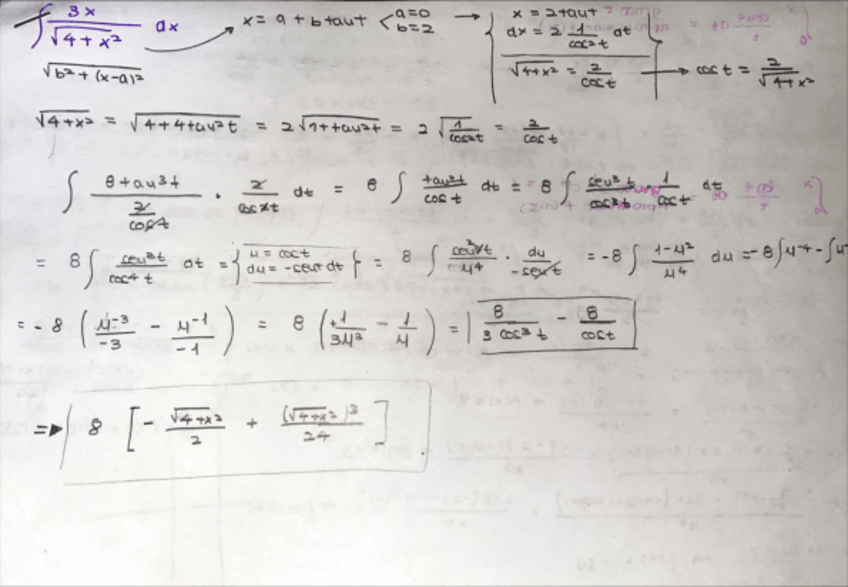 ∫ 3x / √(4+x²) dx → x = a + b tan t < a=0 b=2 → { x = 2 tan t
dx = 2 1/cos²t dt
√(b²+(x-a)²)
√(4+x²) = 2/cos t } → cos t = 2/√(4+x²)
√(4+x²) = √(4+4tan²t) = 2√(1+tan²t) = 2√(1/cos²t) = 2/cos t
∫ 8 tan³t / (2/cos t) · 2/cos²t dt = 8 ∫ tan³t / cos t dt = 8 ∫ sen³t / cos³t · 1/cos t dt
= 8 ∫ sen³t / cos⁴t dt = { u = cos t du = -sen t dt } = 8 ∫ sen³t / u⁴ · du / -sen t = -8 ∫ (1-u²) / u⁴ du = -8 ∫ u⁻⁴ - ∫ u
= -8 ( u⁻³/-3 - u⁻¹/-1 ) = 8 ( +1/3u³ - 1/u ) = | 8/(3 cos³t) - 8/cos t |
=> | 8 [ - √(4+x²)/2 + (√(4+x²))³/24 ]